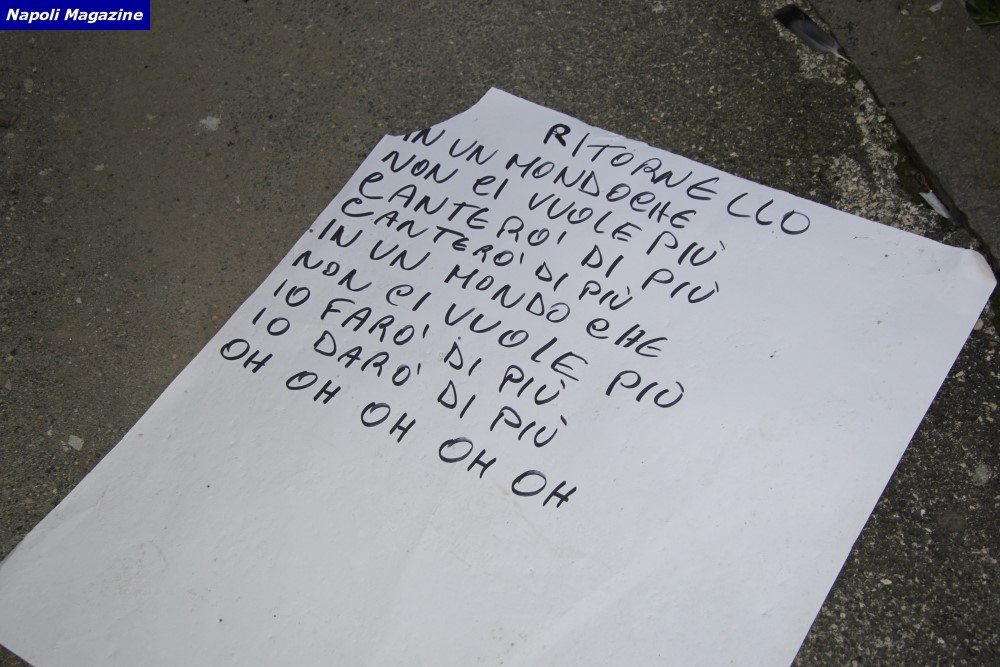 Napoli Magazine
RITORNELLO
IN UN MONDO CHE
NON CI VUOLE PIÙ
CANTERO' DI PIÙ
CANTERO' DI PIÙ
IN UN MONDO CHE
NON CI VUOLE PIÙ
IO FARO' DI PIÙ
IO DARO' DI PIÙ
OH OH OH OH OH